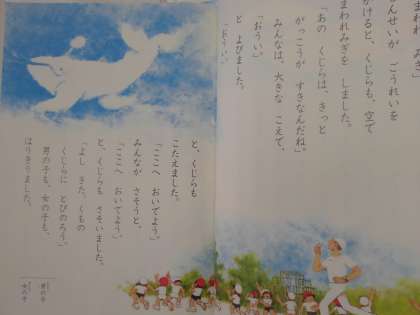 まわれ みぎ
んせいが ごうれいを
かけると、くじらも、空で
まわれみぎを しました。
「あの くじらは、きっと
がっこうが すきなんだね。」
みんなは、大きな こえで、
「おうい。」
と よびました。
「おうい。」
と、くじらも
こたえました。
「ここへ おいでよう。」
みんなが さそうと、
「ここへ おいでよう。」
と、くじらも さそいました。
「よし きた。くもの
くじらに とびのろう。」
男の子も、女の子も、
はりきりました。
男の子
女の子